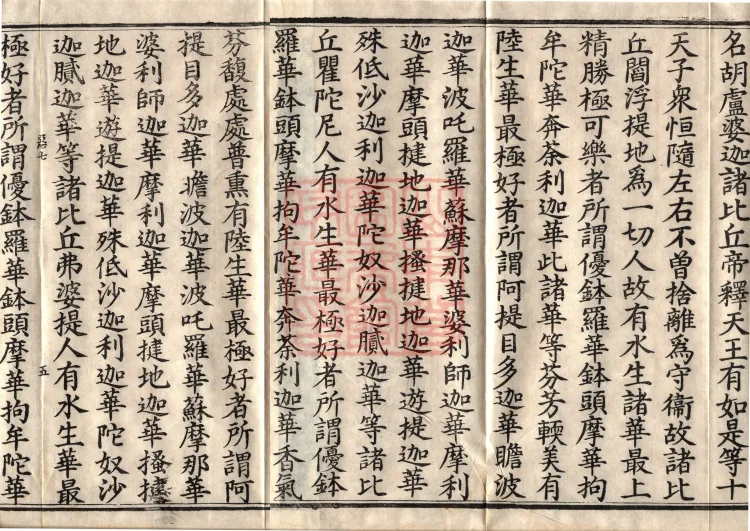 名胡盧婆迦諸比丘帝釋天王有如是等十
天子衆恒隨左右不曾捨離爲守衞故諸比
丘閻浮提地爲一切人故有水生諸華最上
精勝極可樂者所謂優鉢羅華鉢頭摩華拘
牟陀華奔荼利迦華此諸華等芬芳輭美有
陸生華最極好者所謂阿提目多迦華瞻波
迦華波吒羅華蘇摩那華婆利師迦華摩利
迦華摩頭揵地迦華搔揵地迦華遊提迦華
殊低沙迦利迦華陀奴沙迦膩迦華等諸比
丘瞿陀尼人有水生華最極好者所謂優鉢
羅華鉢頭摩華拘牟陀華奔荼利迦華香氣
芬馥處處普熏有陸生華最極好者所謂阿
提目多迦華瞻波迦華波吒羅華蘇摩那華
婆利師迦華摩利迦華摩頭揵地迦華搔揵
地迦華遊提迦華殊低沙迦利迦華陀奴沙
迦膩迦華等諸比丘弗婆提人有水生華最
五
極好者所謂優鉢羅華鉢頭摩華拘牟陀華